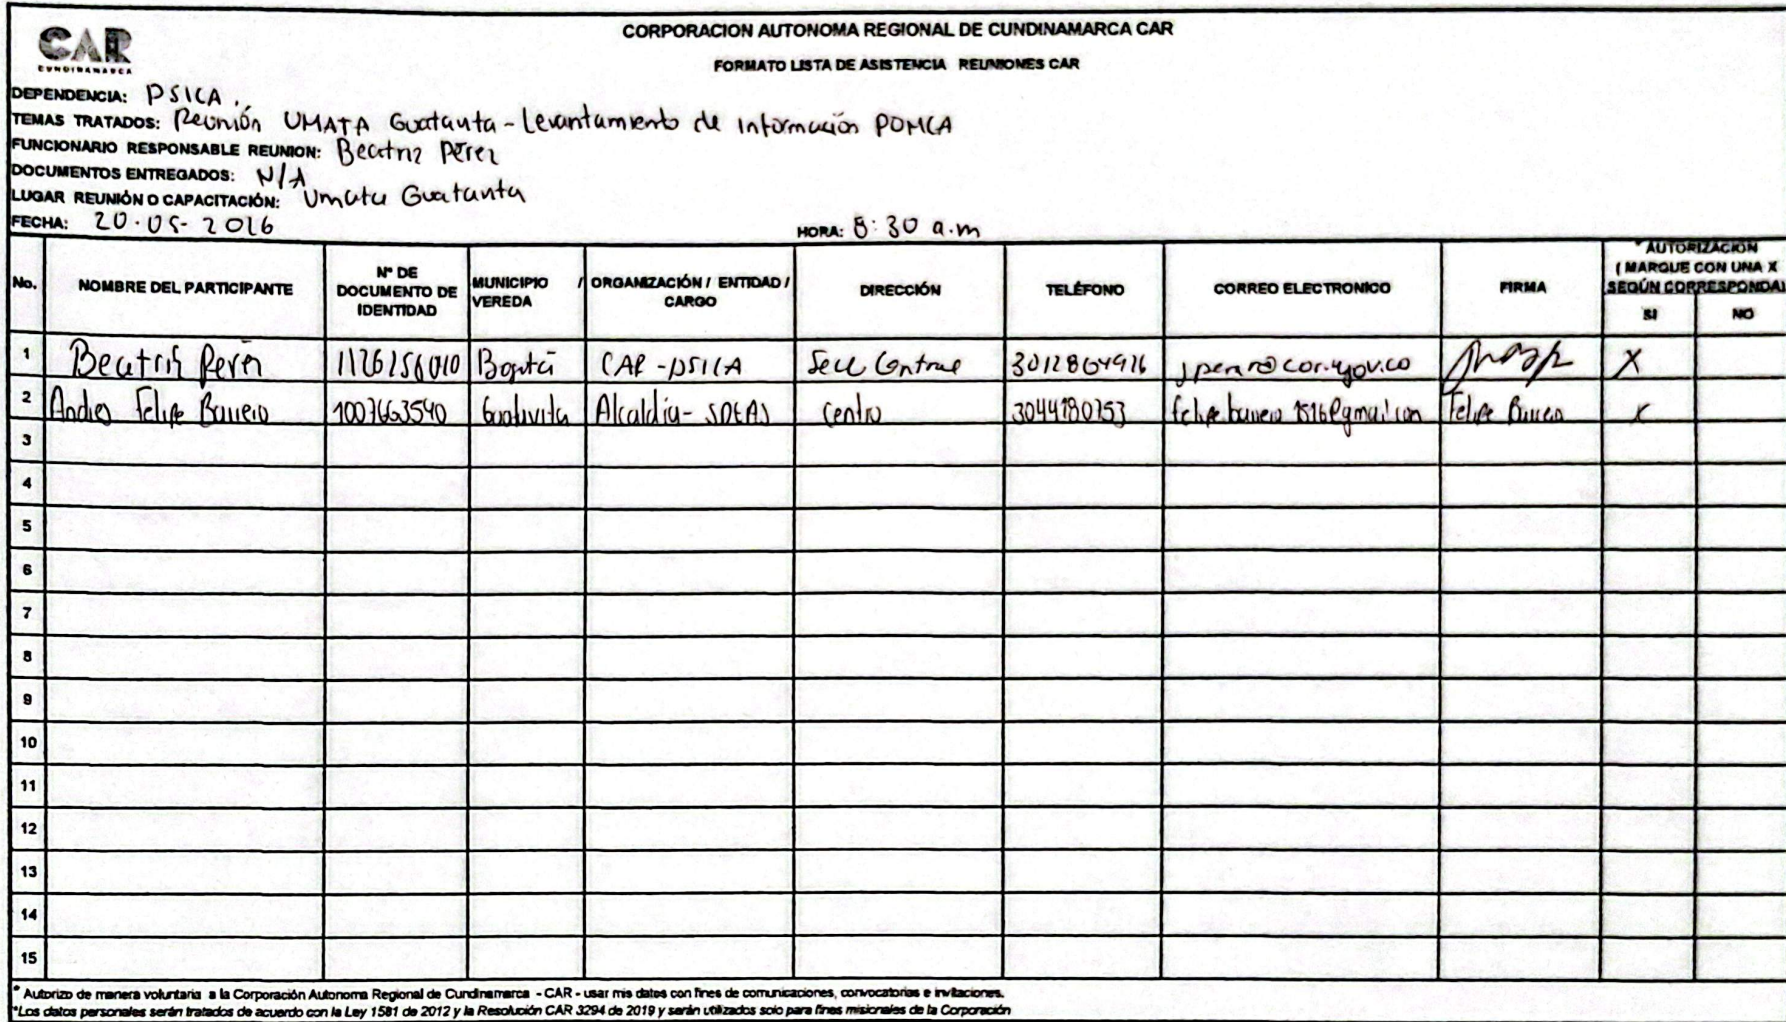 CAR
CUNDINAMARCA
CORPORACION AUTONOMA REGIONAL DE CUNDINAMARCA CAR
FORMATO LISTA DE ASISTENCIA REUNIONES CAR
DEPENDENCIA: PSICA.
TEMAS TRATADOS: Reunión UMATA Guatauta - Levantamiento de información POMCA
FUNCIONARIO RESPONSABLE REUNION: Beatriz Pérez
DOCUMENTOS ENTREGADOS: N/A
LUGAR REUNIÓN O CAPACITACIÓN: Umata Guatauta
FECHA: 20-05-2026 HORA: 8:30 a.m
No. NOMBRE DEL PARTICIPANTE N° DE DOCUMENTO DE IDENTIDAD MUNICIPIO / VEREDA ORGANIZACIÓN / ENTIDAD / CARGO DIRECCIÓN TELÉFONO CORREO ELECTRONICO FIRMA * AUTORIZACIÓN ( MARQUE CON UNA X SEGÚN CORRESPONDA)
SI NO
1 Beatriz Pérez Bogotá CAR - PSICA Sede Central 3012864916 X
2 Andres Felipe Barrero 1007663540 Guatavita Alcaldía - SDEAS centro 3044180753 Felipe Barrero X
3
4
5
6
7
8
9
10
11
12
13
14
15
* Autorizo de manera voluntaria a la Corporación Autonoma Regional de Cundinamarca - CAR - usar mis datos con fines de comunicaciones, convocatorias e invitaciones.
*Los datos personales serán tratados de acuerdo con la Ley 1581 de 2012 y la Resolución CAR 3294 de 2019 y serán utilizados solo para fines misionales de la Corporación